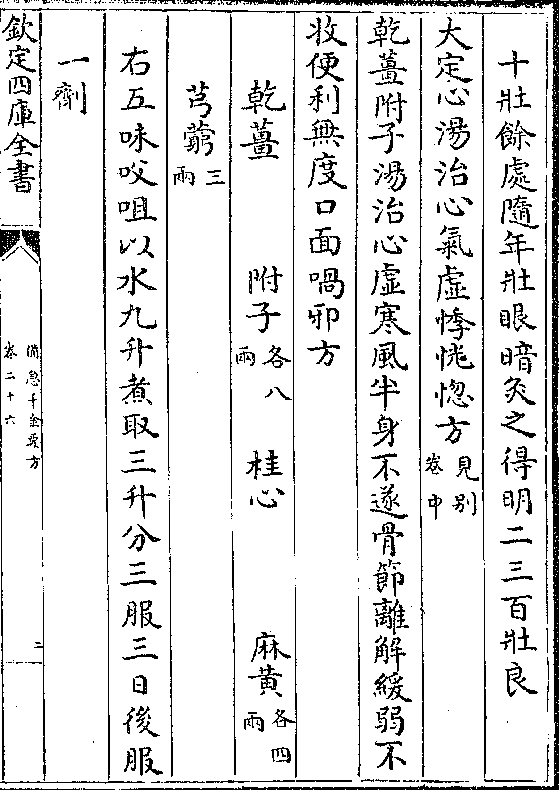 十壯餘處隨年壯眼暗灸之得明二三百壯良
大定心湯治心氣虛悸恍惚方見别卷中
乾薑附子湯治心虛寒風半身不遂骨節離解緩弱不
收便利無度口面喎邪方
乾薑 附子各八兩 桂心 麻黄各四兩
芎藭三兩
右五味㕮咀以水九升煮取三升分三服三日後服
一劑
欽定四庫全書
備急千金要方
卷二十六
二